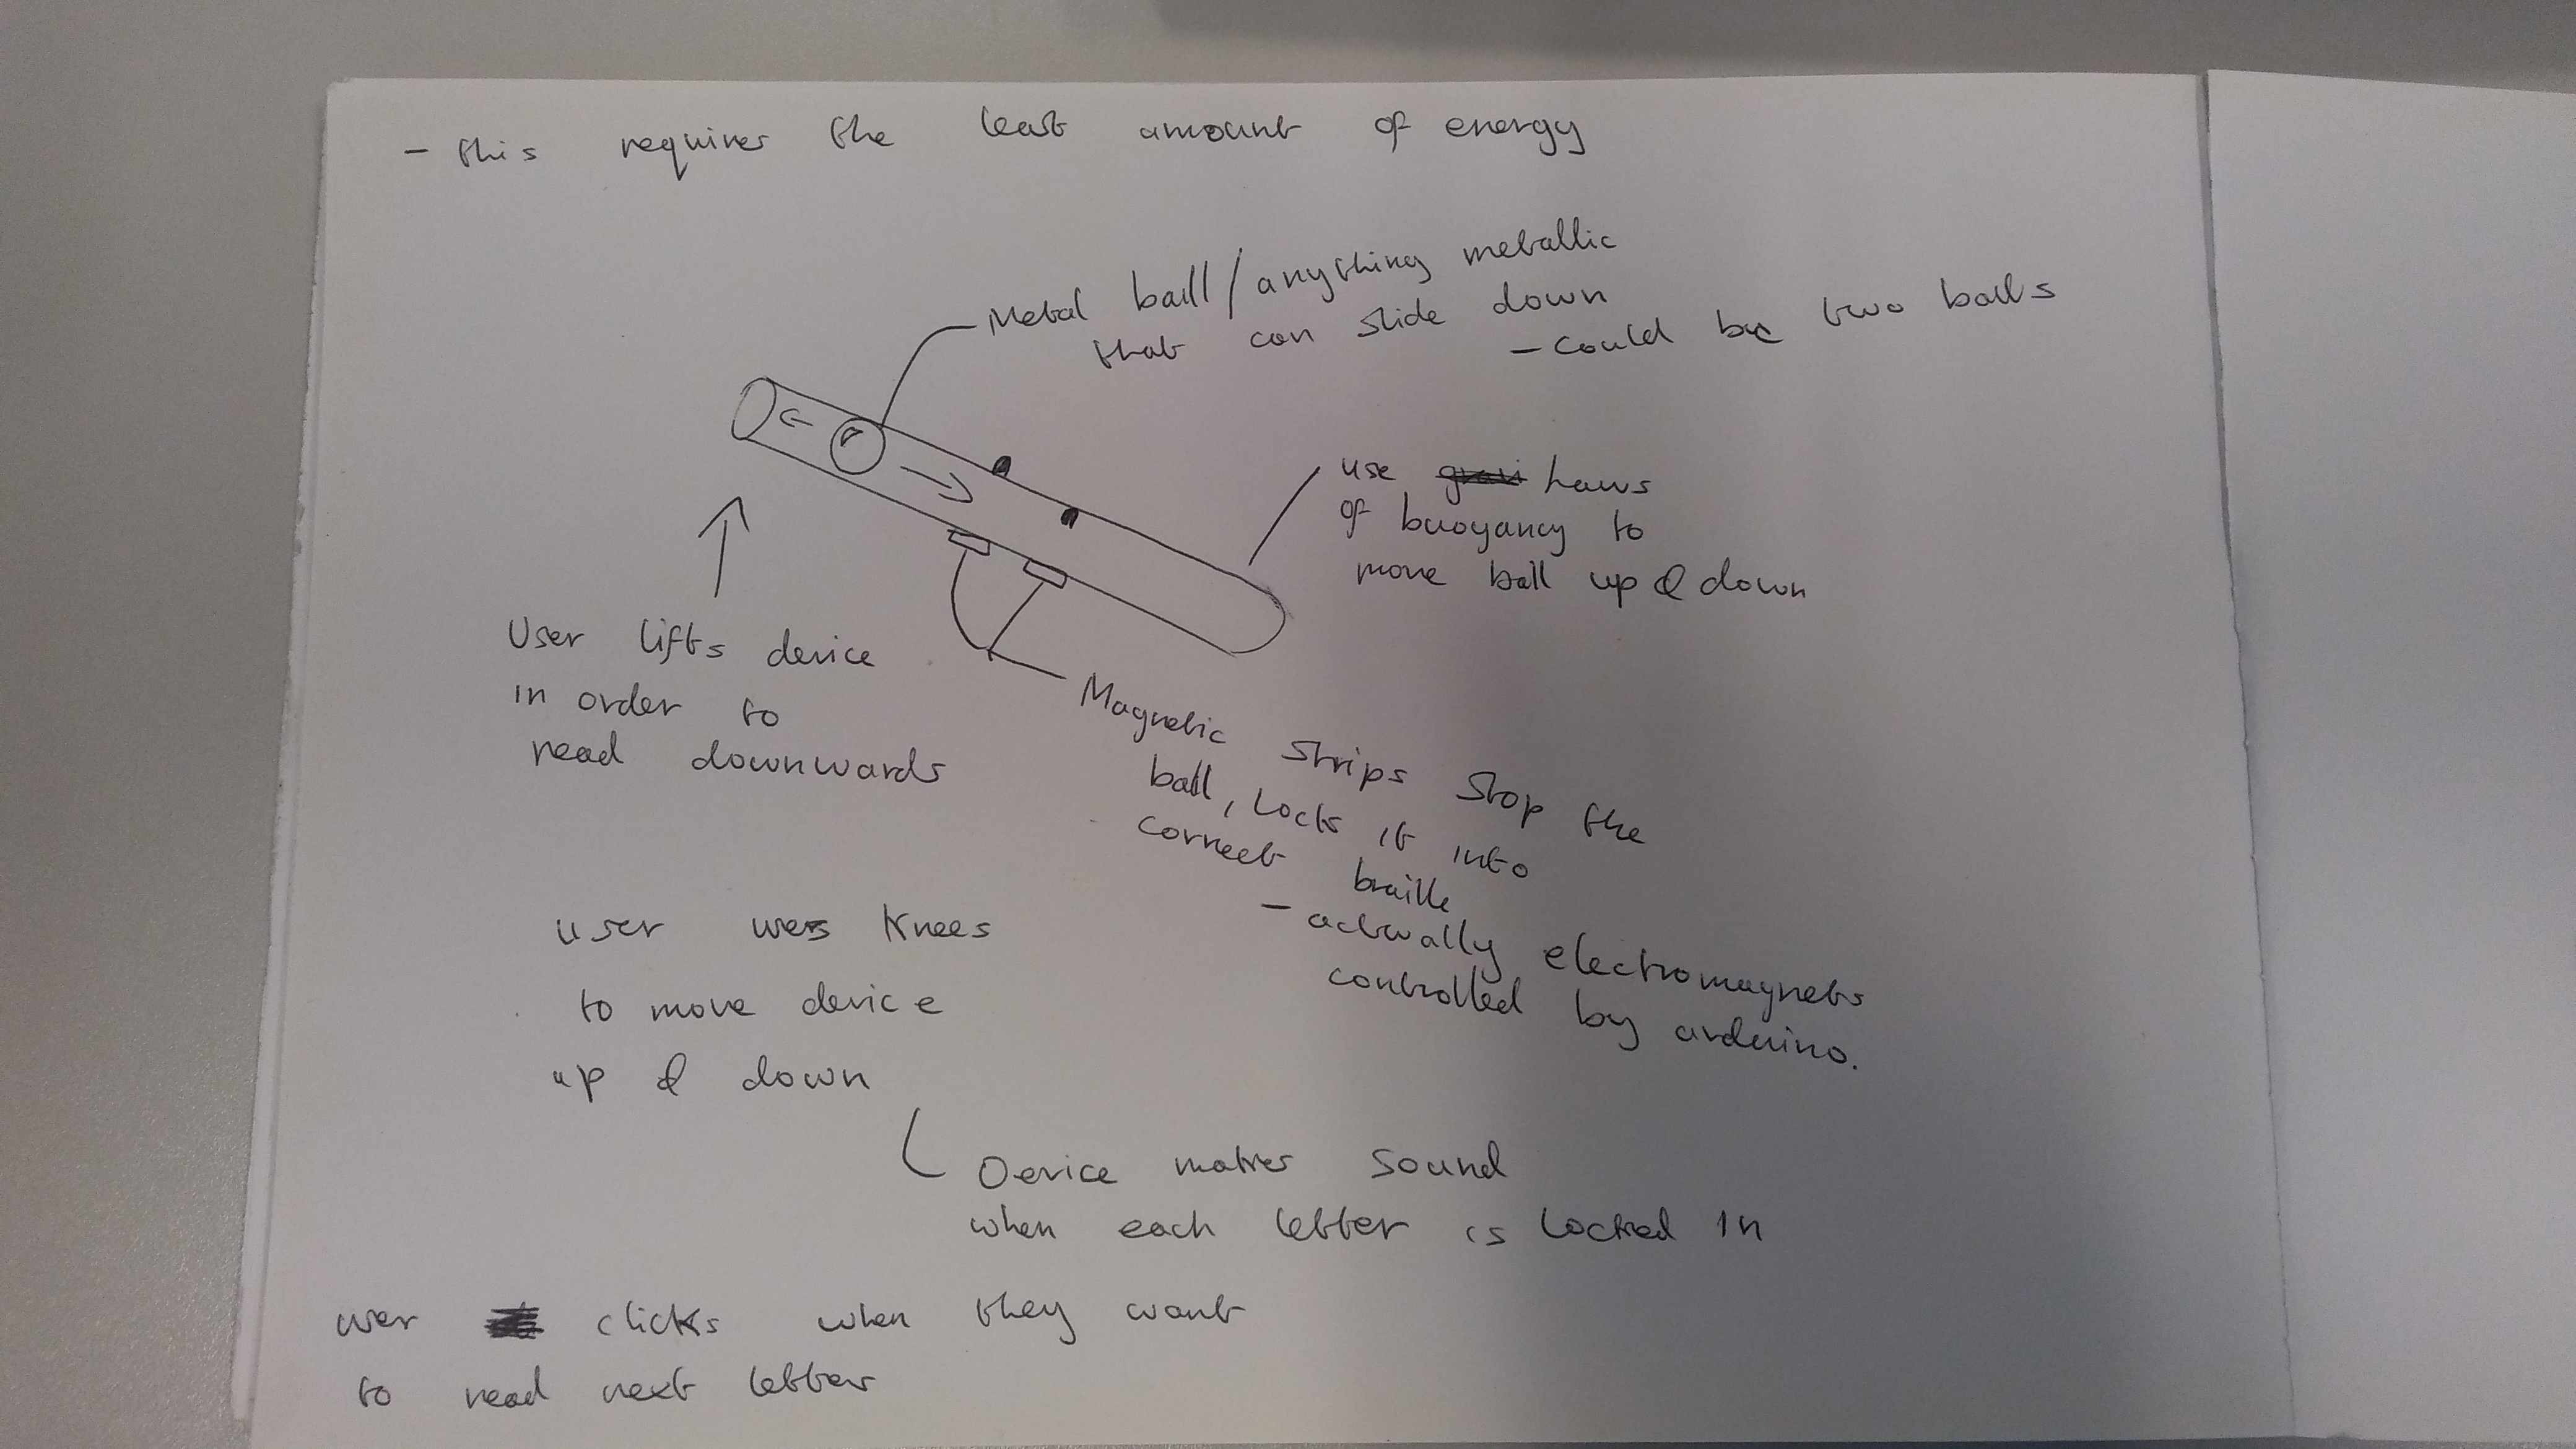 - this requires the least amount of energy
Metal ball/anything metallic
that can slide down
- could be two balls
use laws
of buoyancy to
move ball up & down
User lifts device
in order to
read downwards
Magnetic strips stop the
ball, locks it into
correct braille
- actually electromagnets
controlled by arduino.
user uses knees
to move device
up & down
Device makes sound
when each letter is locked in
user clicks when they want
to read next letter